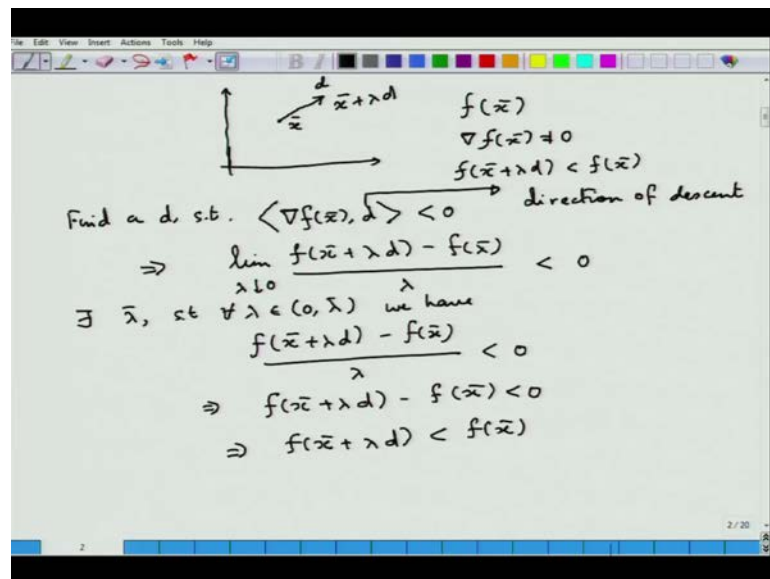 File Edit View Insert Actions Tools Help
B I
d
x̄ + λd
x̄
f(x̄)
∇f(x̄) ≠ 0
f(x̄ + λd) < f(x̄)
Find a d, s.t. ⟨∇f(x̄), d⟩ < 0 → direction of descent
⇒ lim λ↓0 (f(x̄ + λd) - f(x̄)) / λ < 0
∃ λ̄, st ∀ λ ∈ (0, λ̄) we have
(f(x̄ + λd) - f(x̄)) / λ < 0
⇒ f(x̄ + λd) - f(x̄) < 0
⇒ f(x̄ + λd) < f(x̄)
2 / 20
2